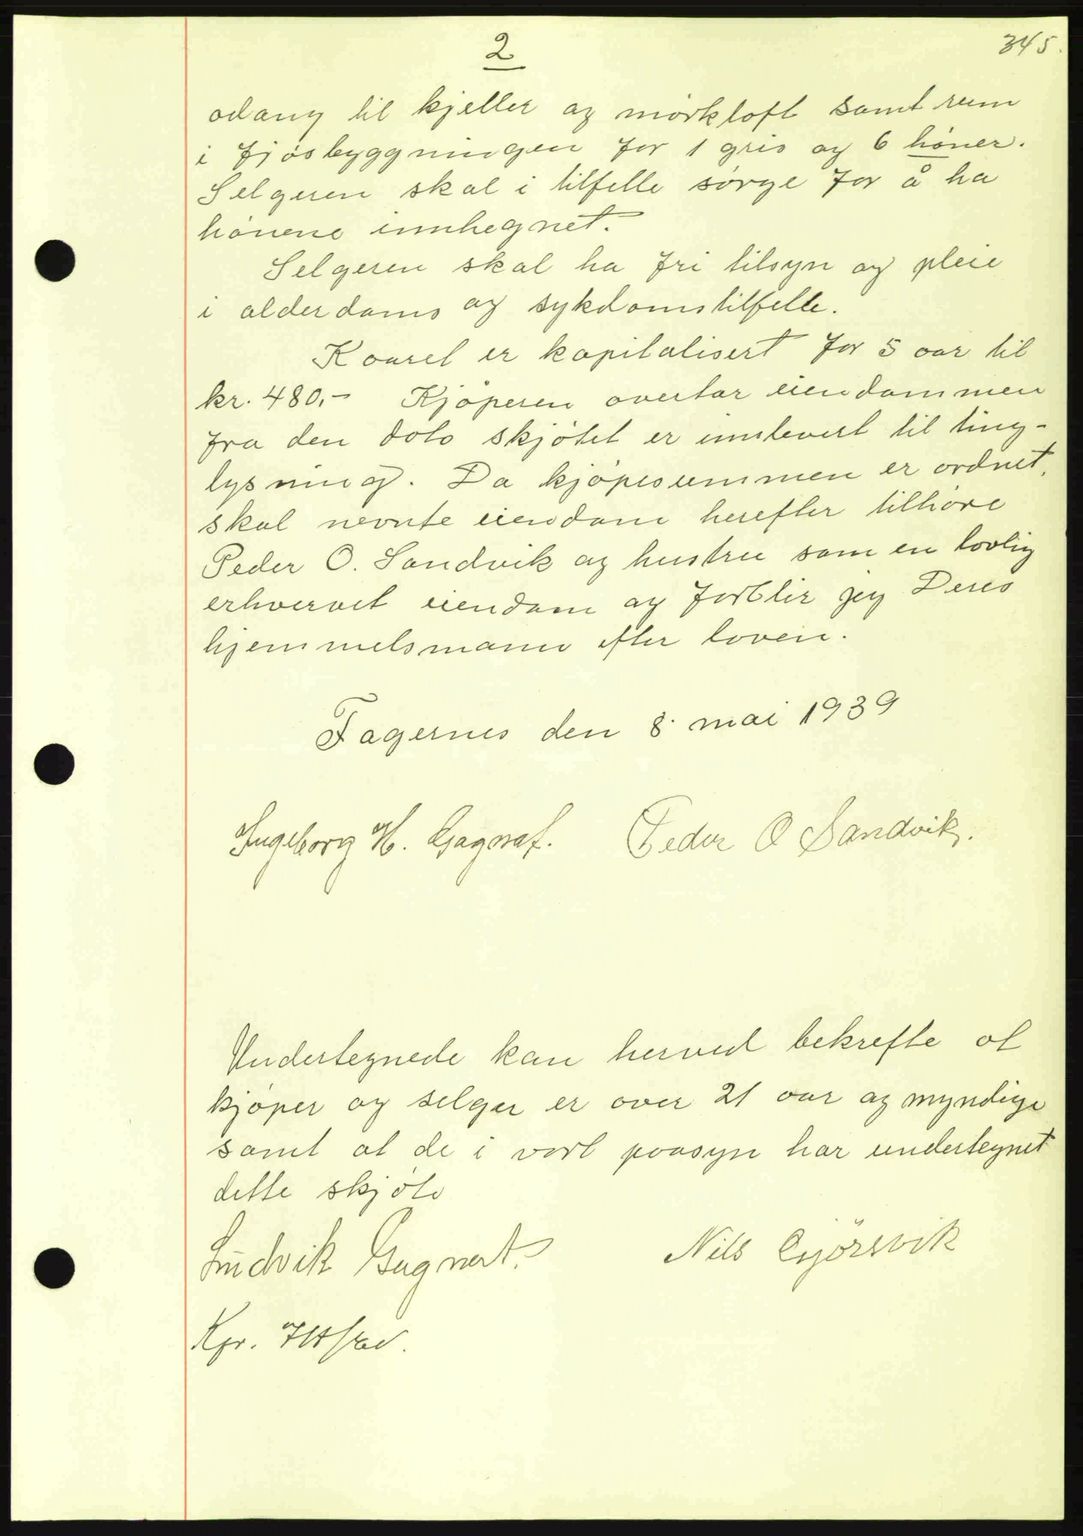 2
345.
adang til kjeller og mörkloft samt rum
i fjösbyggningen for 1 gris og 6 höner.
Selgeren skal i tilfelle sörge for å ha
hönene innhegnet.
Selgeren skal ha fri tilsyn og pleie
i alderdoms og sykdomstilfelle.
Kaarel er kapitalisert for 5 aar til
kr. 480,- Kjöperen overtar eiendommen
fra den dato skjötet er innlevert til ting-
lysning. Da kjöpesummen er ordnet,
skal nevnte eiendom herefter tilhöre
Peder O. Sandvik og hustru som en lovlig
erhvervet eiendom og forblir jeg Deres
hjemmelsmann efter loven.
Fagernes den 8. mai 1939
Ingeborg H. Gagnat. Peder O Sandvik.
Undertegnede kan herved bekrefte at
kjöper og selger er over 21 aar og myndige
samt at de i vort paasyn har undertegnet
dette skjöte
Ludvik Gagnat. Nils Gjörsvik
Kfr.